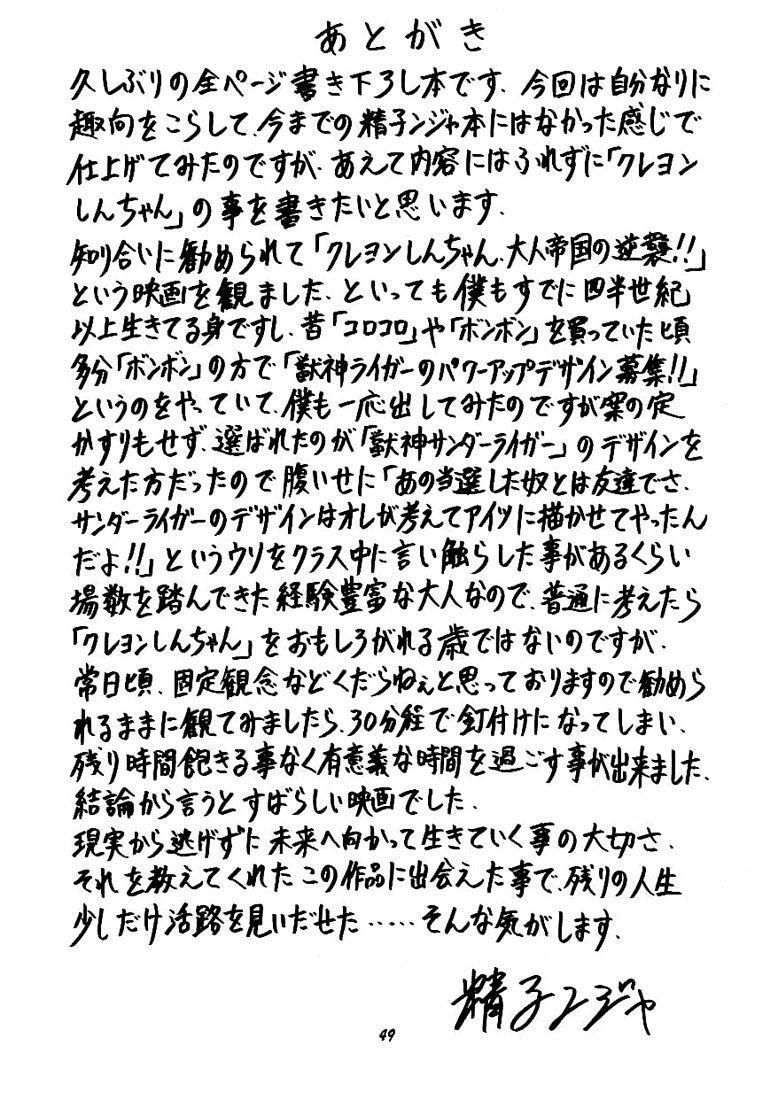 あとがき
久しぶりの全ページ書き下ろし本です、今回は自分なりに
趣向をこらして、今までの精子ンジャ本にはなかった感じで
仕上げてみたのですが、あえて内容にはふれずに「クレヨン
しんちゃん」の事を書きたいと思います、
知り合いに勧められて「クレヨンしんちゃん、大人帝国の逆襲!!」
という映画を観ました、といっても僕もすでに四半世紀
以上生きてる身ですし、昔「コロコロ」や「ボンボン」を買っていた頃
多分「ボンボン」の方で「獣神ライガーのパワーアップデザイン募集!!」
というのをやっていて、僕も一応出してみたのですが案の定
かすりもせず、選ばれたのが「獣神サンダーライガー」のデザインを
考えた方だったので腹いせに「あの当選した奴とは友達でさ、
サンダーライガーのデザインはオレが考えてアイツに描かせてやったん
だよ!!」というウソをクラス中に言い触らした事があるくらい
場数を踏んできた経験豊富な大人なので、普通に考えたら
「クレヨンしんちゃん」をおもしろがれる歳ではないのですが、
常日頃、固定観念などくだらねぇと思っておりますので勧めら
れるままに観てみましたら、30分程で釘付けになってしまい、
残り時間飽きる事なく有意義な時間を過ごす事が出来ました、
結論から言うとすばらしい映画でした、
現実から逃げずに未来へ向かって生きていく事の大切さ、
それを教えてくれたこの作品に出会えた事で、残りの人生
少しだけ活路を見いだせた‥‥‥そんな気がします、
精子ンジャ
49